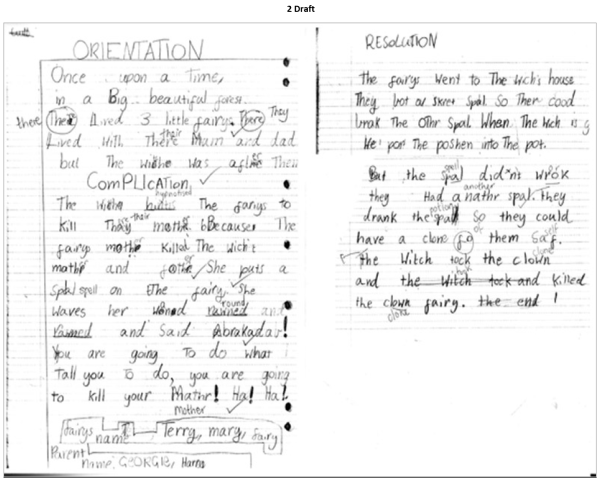 2 Draft
ORIENTATION
Once upon a Time,
in a Big beautiful forest.
there Their Lived 3 little fairys. There They
their
Lived With There Mam and dad
but The was after Them
COMPLICATION
hypnotised
The The fairys to
their
kill They mothe bBecause The
fairys mothe killed The wicht
mathe and fothe She puts a
Spal spell on The fairy. She
round
Waves her wond rawned and
rawned and Said Abrakadab!
You are going To do what
Tall you To do, you are going
to kill your Mathr! Ha! Ha!
mother
fairys name Terry, mary, fairy
Parent
name, GEORGIE, Harry
RESOLUTION
The fairys Went to The wich's house
They bot av skret Spal. So Ther cood
brak The Othr Spal When The Wich is g
We' por The poshen into The pot.
spell
But the spal did'n't wrok
another
they Had anathr spal. they
potion
drank the spal So they could
of self
have a clone fo them Saf.
the Witch tock the clown
clone
took
and the witch tock and killed
the clown fairy. the end !
clone